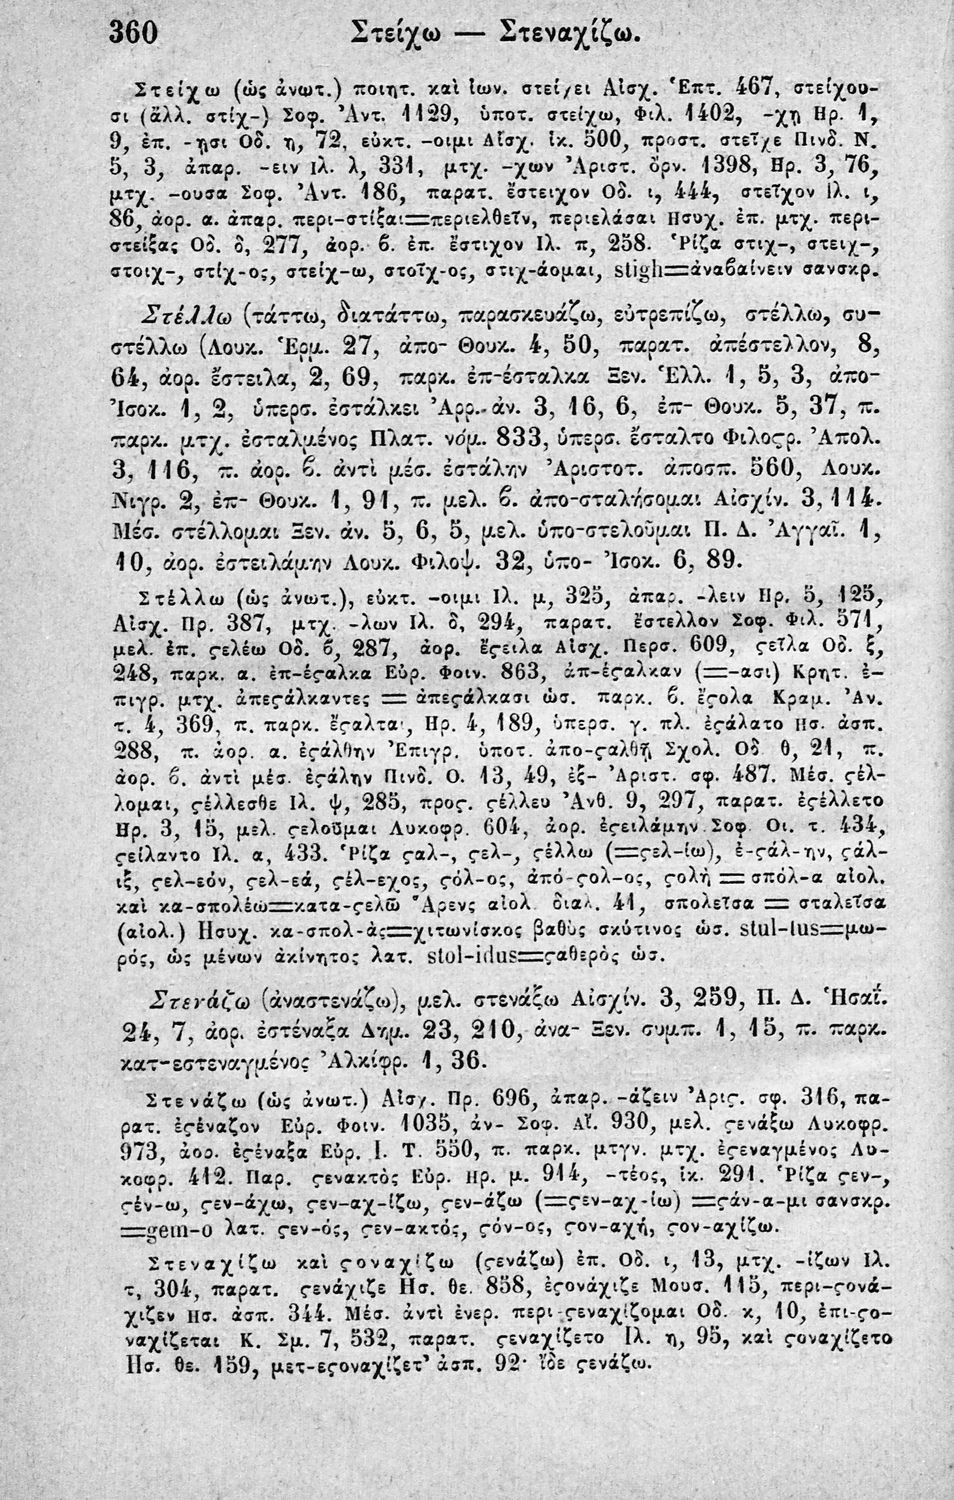 360 Στείχω — Στεναχίζω.
Στείχω (ὡς ἀνωτ.) ποιητ. καὶ ἰων. στείχει Αἰσχ. Ἑπτ. 467, στείχου-
σι (ἄλλ. στίχ-) Σοφ. Ἀντ. 1129, ὑποτ. στείχω, Φιλ. 1402, -χῃ Ηρ. 1,
9, ἐπ. -ῃσι Οδ. η, 72, εὐκτ. -οιμι Αἰσχ. ἱκ. 500, προστ. στεῖχε Πινδ. Ν.
5, 3, ἀπαρ. -ειν Ιλ. λ, 331, μτχ. -χων Ἀριστ. ὄρν. 1398, Ηρ. 3, 76,
μτχ. -ουσα Σοφ. Ἀντ. 186, παρατ. ἔστειχον Οδ. ι, 444, στεῖχον Ιλ. ι,
86, ἀορ. α. ἀπαρ. περι-στίξαι=περιελθεῖν, περιελάσαι Ησυχ. ἐπ. μτχ. περι-
στείξας Οδ. δ, 277, ἀορ. ϐ. ἐπ. ἔστιχον Ιλ. π, 258. Ῥίζα στιχ-, στειχ-,
στοιχ-, στίχ-ος, στείχ-ω, στοῖχ-ος, στιχ-άομαι, stigh=ἀναϐαίνειν σανσκρ.
Στέλλω (τάττω, διατάττω, παρασκευάζω, εὐτρεπίζω, στέλλω, συ-
στέλλω (Λουκ. Ἑρμ. 27, ἀπο- Θουκ. 4, 50, παρατ. ἀπέστελλον, 8,
64, ἀορ. ἔστειλα, 2, 69, παρκ. ἐπ-έσταλκα Ξεν. Ἑλλ. 1, 5, 3, ἀπο-
Ἰσοκ. 1, 2, ὑπερσ. ἐστάλκει Ἀρρ. ἀν. 3, 16, 6, ἐπ- Θουκ. 5, 37, π.
παρκ. μτχ. ἐσταλμένος Πλατ. νόμ. 833, ὑπερσ. ἔσταλτο Φιλοςρ. Ἀπολ.
3, 116, π. ἀορ. ϐ. ἀντὶ μέσ. ἐστάλην Ἀριστοτ. ἀποσπ. 560, Λουκ.
Νιγρ. 2, ἐπ- Θουκ. 1, 91, π. μελ. ϐ. ἀπο-σταλήσομαι Αἰσχίν. 3, 114.
Μέσ. στέλλομαι Ξεν. ἀν. 5, 6, 5, μελ. ὑπο-στελοῦμαι Π. Δ. Ἀγγαῖ. 1,
10, ἀορ. ἐστειλάμην Λουκ. Φιλοψ. 32, ὑπο- Ἰσοκ. 6, 89.
Στέλλω (ὡς ἀνωτ.), εὐκτ. -οιμι Ιλ. μ, 325, ἀπαρ. -λειν Ηρ. 5, 125,
Αἰσχ. Πρ. 387, μτχ. -λων Ιλ. δ, 294, παρατ. ἔστελλον Σοφ. Φιλ. 571,
μελ. ἐπ. ςελέω Οδ. ϐ, 287, ἀορ. ἔςειλα Αἰσχ. Περσ. 609, ςεῖλα Οδ. ξ,
248, παρκ. α. ἐπ-έςαλκα Εὐρ. Φοιν. 863, ἀπ-έςαλκαν (=-ασι) Κρητ. ἐ-
πιγρ. μτχ. ἀπεςάλκαντες = ἀπεςάλκασι ὡσ. παρκ. ϐ. ἔςολα Κραμ. Ἀν.
τ. 4, 369, π. παρκ. ἔςαλται, Ηρ. 4, 189, ὑπερσ. γ. πλ. ἐςάλατο Ησ. ἀσπ.
288, π. ἀορ. α. ἐςάλθην Ἐπιγρ. ὑποτ. ἀπο-ςαλθῇ Σχολ. Οδ θ, 21, π.
ἀορ. ϐ. ἀντὶ μέσ. ἐςάλην Πινδ. Ο. 13, 49, ἐξ- Ἀριστ. σφ. 487. Μέσ. ςέλ-
λομαι, ςέλλεσθε Ιλ. ψ, 285, προς. ςέλλευ Ἀνθ. 9, 297, παρατ. ἐςέλλετο
Ηρ. 3, 15, μελ. ςελοῦμαι Λυκοφρ. 604, ἀορ. ἐςειλάμην Σοφ. Οι. τ. 434,
ςείλαντο Ιλ. α, 433. Ῥίζα ςαλ-, ςελ-, ςέλλω (=ςελ-ίω), ἐ-ςάλ-ην, ςάλ-
ιξ, ςελ-εόν, ςελ-εά, ςέλ-εχος, ςόλ-ος, ἀπό-ςολ-ος, ςολὴ = σπόλ-α αἰολ.
καὶ κα-σπολέω=κατα-ςελῶ Ἄρενς αἰολ. διαλ. 41, σπολεῖσα = σταλεῖσα
(αἰολ.) Ησυχ. κα-σπολ-ὰς=χιτωνίσκος βαθὺς σκύτινος ὡσ. stul-tus=μω-
ρός, ὡς μένων ἀκίνητος λατ. stol-idus=ςαθερὸς ὡσ.
Στενάζω (ἀναστενάζω), μελ. στενάξω Αἰσχίν. 3, 259, Π. Δ. Ἡσαΐ.
24, 7, ἀορ. ἐστέναξα Δημ. 23, 210, ἀνα- Ξεν. συμπ. 1, 15, π. παρκ.
κατ-εστεναγμένος Ἀλκίφρ. 1, 36.
Στενάζω (ὡς ἀνωτ.) Αἰσχ. Πρ. 696, ἀπαρ. -άζειν Ἀρις. σφ. 316, πα-
ρατ. ἐςέναζον Εὐρ. Φοιν. 1035, ἀν- Σοφ. Αἴ. 930, μελ. ςενάξω Λυκοφρ.
973, ἀορ. ἐςέναξα Εὐρ. Ι. Τ. 550, π. παρκ. μτγν. μτχ. ἐςεναγμένος Λυ-
κοφρ. 412. Παρ. ςενακτὸς Εὐρ. Ηρ. μ. 914, -τέος, ἱκ. 291. Ῥίζα ςεν-,
ςέν-ω, ςεν-άχω, ςεν-αχ-ίζω, ςεν-άζω (=ςεν-αχ-ίω) =ςάν-α-μι σανσκρ.
=gem-o λατ. ςεν-ός, ςεν-ακτός, ςόν-ος, ςον-αχή, ςον-αχίζω.
Στεναχίζω καὶ ςοναχίζω (ςενάζω) ἐπ. Οδ. ι, 13, μτχ. -ίζων Ιλ.
τ, 304, παρατ. ςενάχιζε Ησ. θε. 858, ἐςονάχιζε Μουσ. 115, περι-ςονά-
χιζεν Ησ. ἀσπ. 344. Μέσ. ἀντὶ ἐνερ. περι-ςεναχίζομαι Οδ. κ, 10, ἐπι-ςο-
ναχίζεται Κ. Σμ. 7, 532, παρατ. ςεναχίζετο Ιλ. η, 95, καὶ ςοναχίζετο
Ησ. θε. 159, μετ-εςοναχίζετ' ἀσπ. 92· ἴδε ςενάζω.